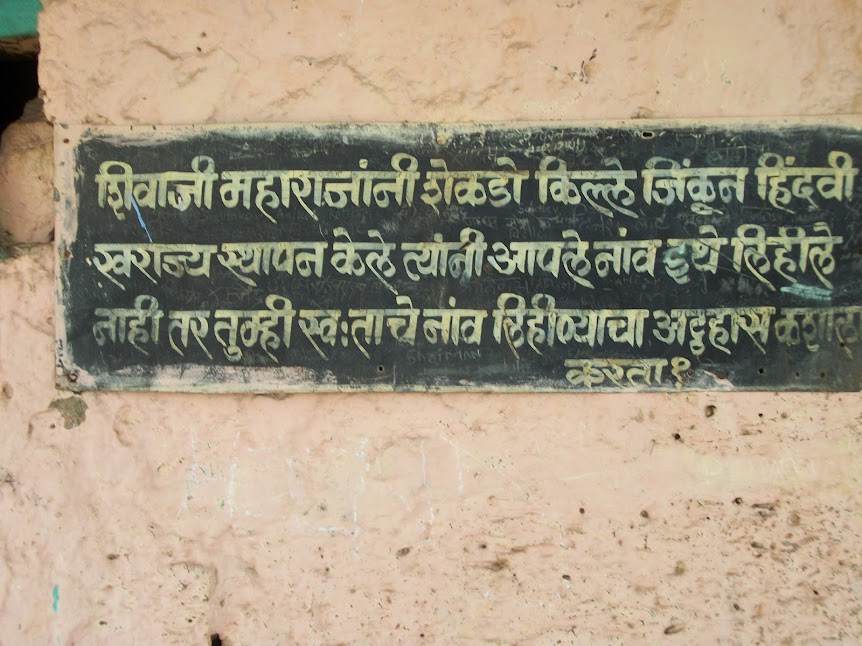 शिवाजी महाराजांनी शेकडो किल्ले जिंकून हिंदवी
स्वराज्य स्थापन केले त्यांनी आपले नांव इथे लिहीले
नाही तर तुम्ही स्व:ताचे नांव लिहीण्याचा अट्टहास कशाला
करता?